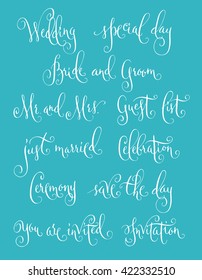 Wedding special day
Bride and Groom
Mr and Mrs Guest list
just married Celebration
Ceremony save the day
You are invited Invitation
shutterstock.com · 422332510